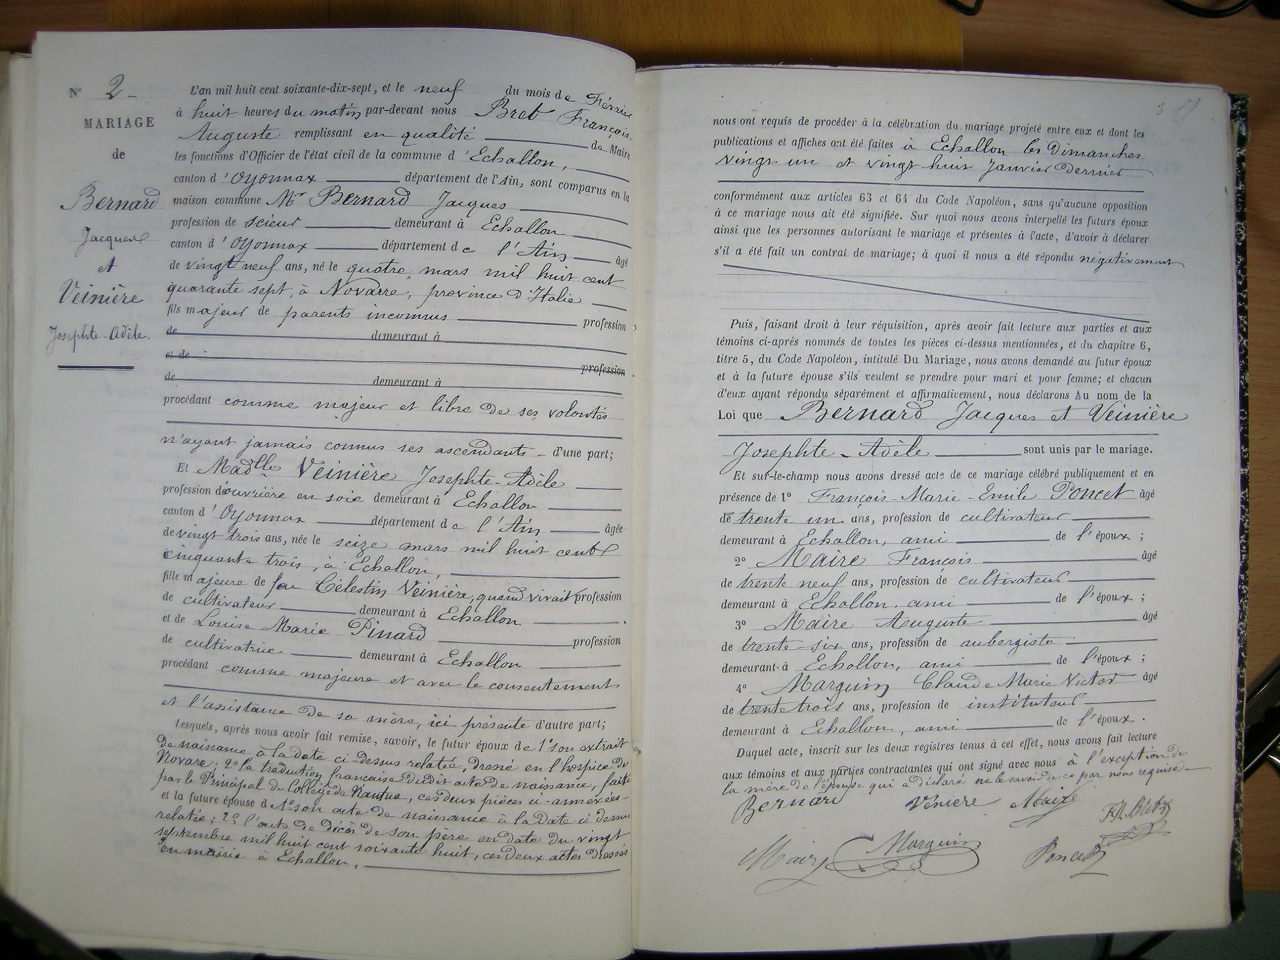 N° 2
MARIAGE
de
Bernard
Jacques
et
Veinière
Josephte-Adèle.
L'an mil huit cent soixante-dix-sept, et le neuf du mois de Février
à huit heures du matin par-devant nous Bret François
Auguste remplissant en qualité de Maire
les fonctions d'Officier de l'état civil de la commune d'Echallon,
canton d'Oyonnax département de l'Ain, sont comparus en la
maison commune Mr Bernard Jacques
profession de scieur demeurant à Echallon
canton d'Oyonnax département de l'Ain âgé
de vingt neuf ans, né le quatre mars mil huit cent
quarante sept, à Novarre, province d'Italie
fils majeur de parents inconnus profession
de demeurant à
et de profession
de demeurant à
procédant comme majeur et libre de ses volontés
n'ayant jamais connus ses ascendants d'une part;
Et Madlle Veinière Josephte-Adèle
profession d'ouvrière en soie demeurant à Echallon
canton d'Oyonnax département de l'Ain âgée
de vingt trois ans, née le seize mars mil huit cent
cinquante trois, à Echallon,
fille majeure de feu Célestin Veinière, quand vivait profession
de cultivateur demeurant à Echallon
et de Louise Marie Pinard profession
de cultivatrice demeurant à Echallon
procédant comme majeure et avec le consentement
et l'assistance de sa mère, ici présente d'autre part;
Lesquels, après nous avoir fait remise, savoir, le futur époux de 1° son extrait
de naissance à la date ci dessus relatée, dressé en l'hospice de
Novare; 2° la traduction française dudit acte de naissance, faite
par le Principal du Collège de Nantua, ces deux pièces ci-annexées
et la future épouse d 1° son acte de naissance à la date ci dessus
relatée; 2° l'acte de décès de son père en date du vingt
septembre mil huit cent soixante huit, ces deux actes dressés
en mairie à Echallon.
nous ont requis de procéder à la célébration du mariage projeté entre eux et dont les
publications et affiches ont été faites à Echallon les dimanches
vingt un et vingt huit Janvier dernier
conformément aux articles 63 et 64 du Code Napoléon, sans qu'aucune opposition
à ce mariage nous ait été signifiée. Sur quoi nous avons interpellé les futurs époux
ainsi que les personnes autorisant le mariage et présentes à l'acte, d'avoir à déclarer
s'il a été fait un contrat de mariage; à quoi il nous a été répondu négativement
Puis, faisant droit à leur réquisition, après avoir fait lecture aux parties et aux
témoins ci-après nommés de toutes les pièces ci-dessus mentionnées, et du chapitre 6,
titre 5, du Code Napoléon, intitulé Du Mariage, nous avons demandé au futur époux
et à la future épouse s'ils veulent se prendre pour mari et pour femme; et chacun
d'eux ayant répondu séparément et affirmativement, nous déclarons Au nom de la
Loi que Bernard Jacques et Veinière
Josephte-Adèle sont unis par le mariage.
Et sur-le-champ nous avons dressé acte de ce mariage célébré publiquement et en
présence de 1° François-Marie-Emile Poncet âgé
de trente un ans, profession de cultivateur
demeurant à Echallon, ami de l'époux;
2° Maire François âgé
de trente neuf ans, profession de cultivateur
demeurant à Echallon, ami de l'époux;
3° Maire Auguste âgé
de trente-six ans, profession de aubergiste
demeurant à Echallon, ami de l'époux;
4° Marguin Claude Marie Victor âgé
de trente trois ans, profession de instituteur
demeurant à Echallon, ami de l'époux.
Duquel acte, inscrit sur les deux registres tenus à cet effet, nous avons fait lecture
aux témoins et aux parties contractantes qui ont signé avec nous à l'exception de
la mère de l'épouse qui a déclaré ne le savoir de ce par nous requise
Bernard Veniere Maire
Maire Marguin Poncet